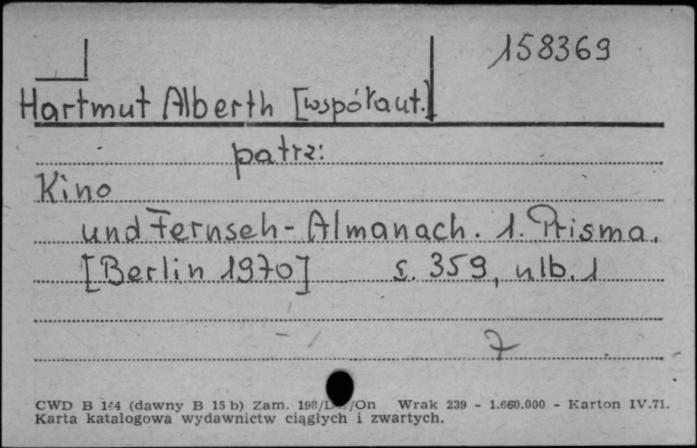 158369
Hartmut Alberth [współaut.]
patrz:
Kino
und Fernseh-Almanach. 1. Prisma.
[Berlin 1970] s. 359, nlb. 1
7
CWD B 144 (dawny B 15 b) Zam. /On Wrak 239 - 1.660.000 - Karton IV.71.
Karta katalogowa wydawnictw ciągłych i zwartych.